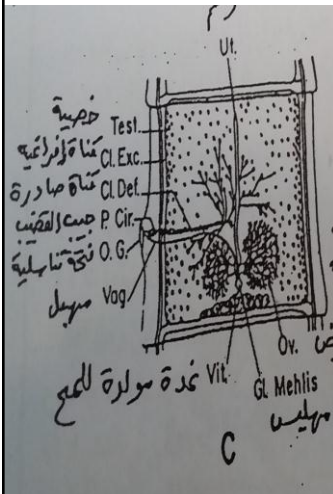 رم
Ut.
خصية Test.
قناة إفراغية Cl.Exc.
قناة صادرة Cl.Def.
جيب القضيب P. Cir.
فتحة تناسلية O.G.
مهبل Vag
Ov.
غدة مولدة للمح Vit. Gl. Mehlis
مهليس
C